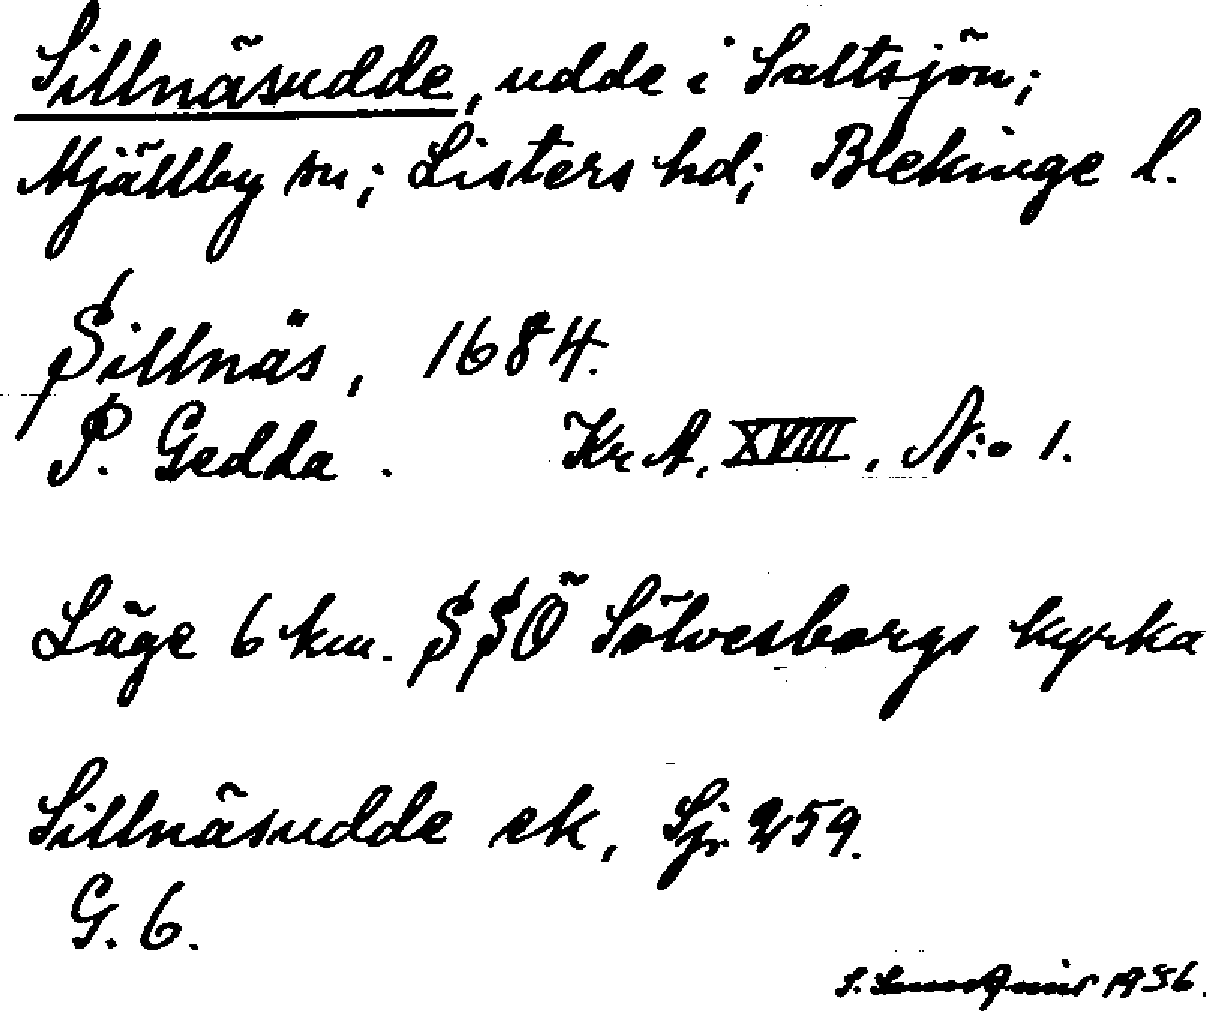 Sillnäsudde, udde i Saltsjön;
Mjällby sn; Listers hd; Blekinge l.
Sillnäs, 1684.
P. Gedda. Kr. A. XVIII, N:o 1.
Läge 6 km. SSÖ Sölvesborgs kyrka
Sillnäsudde ek, Sjr. 259.
G. 6.
S. 1936.